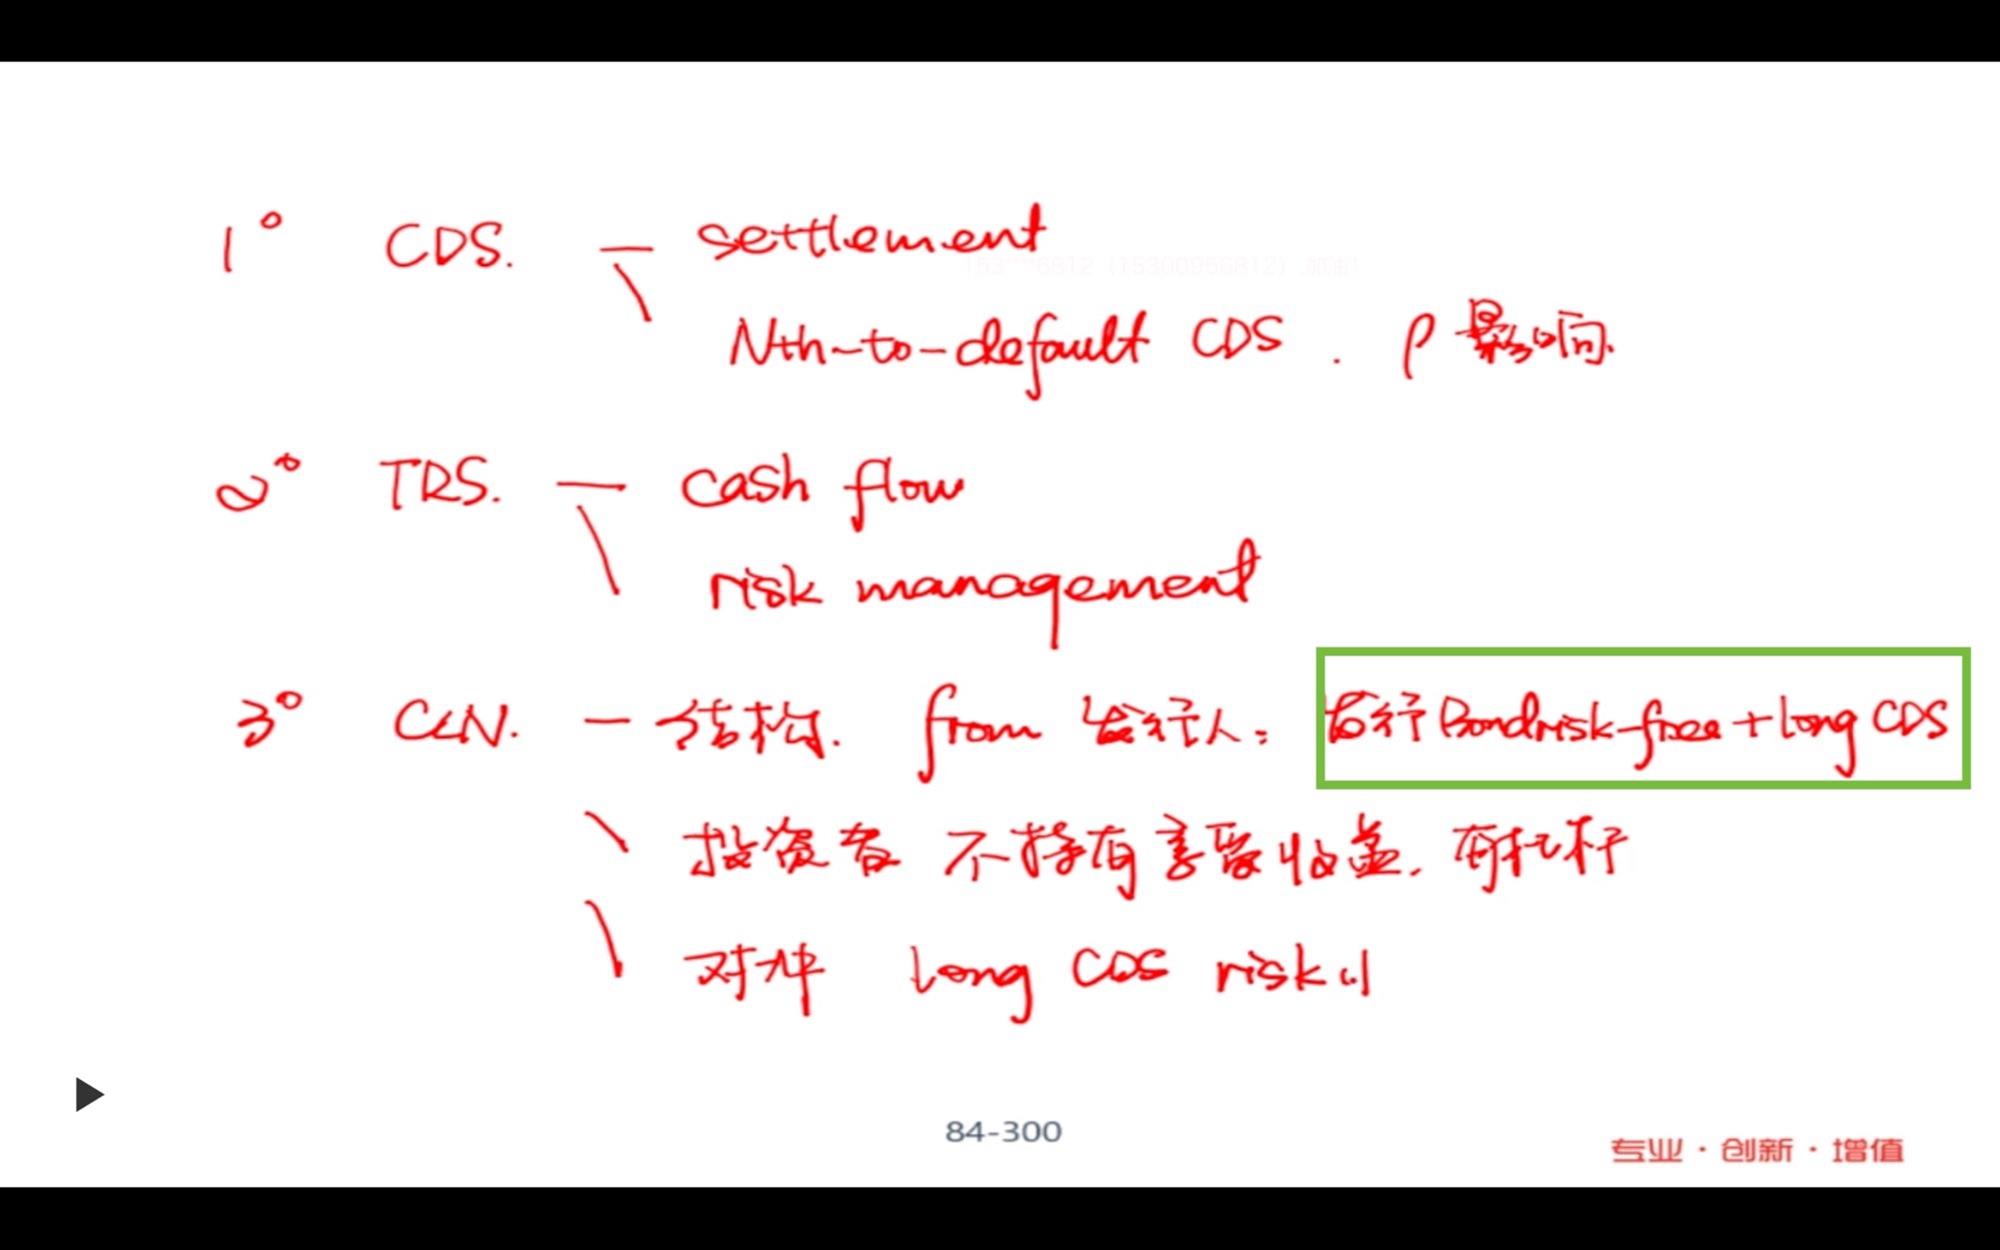 1° CDS. — settlement
Nth-to-default CDS. ρ影响.
2° TRS. — cash flow
risk management
3° CLN. — 结构. from 发行人: 发行Bond risk-free + long CDS
投资者 不持有享受收益. 有杠杆
对冲 long CDS risk
84-300
专业·创新·增值